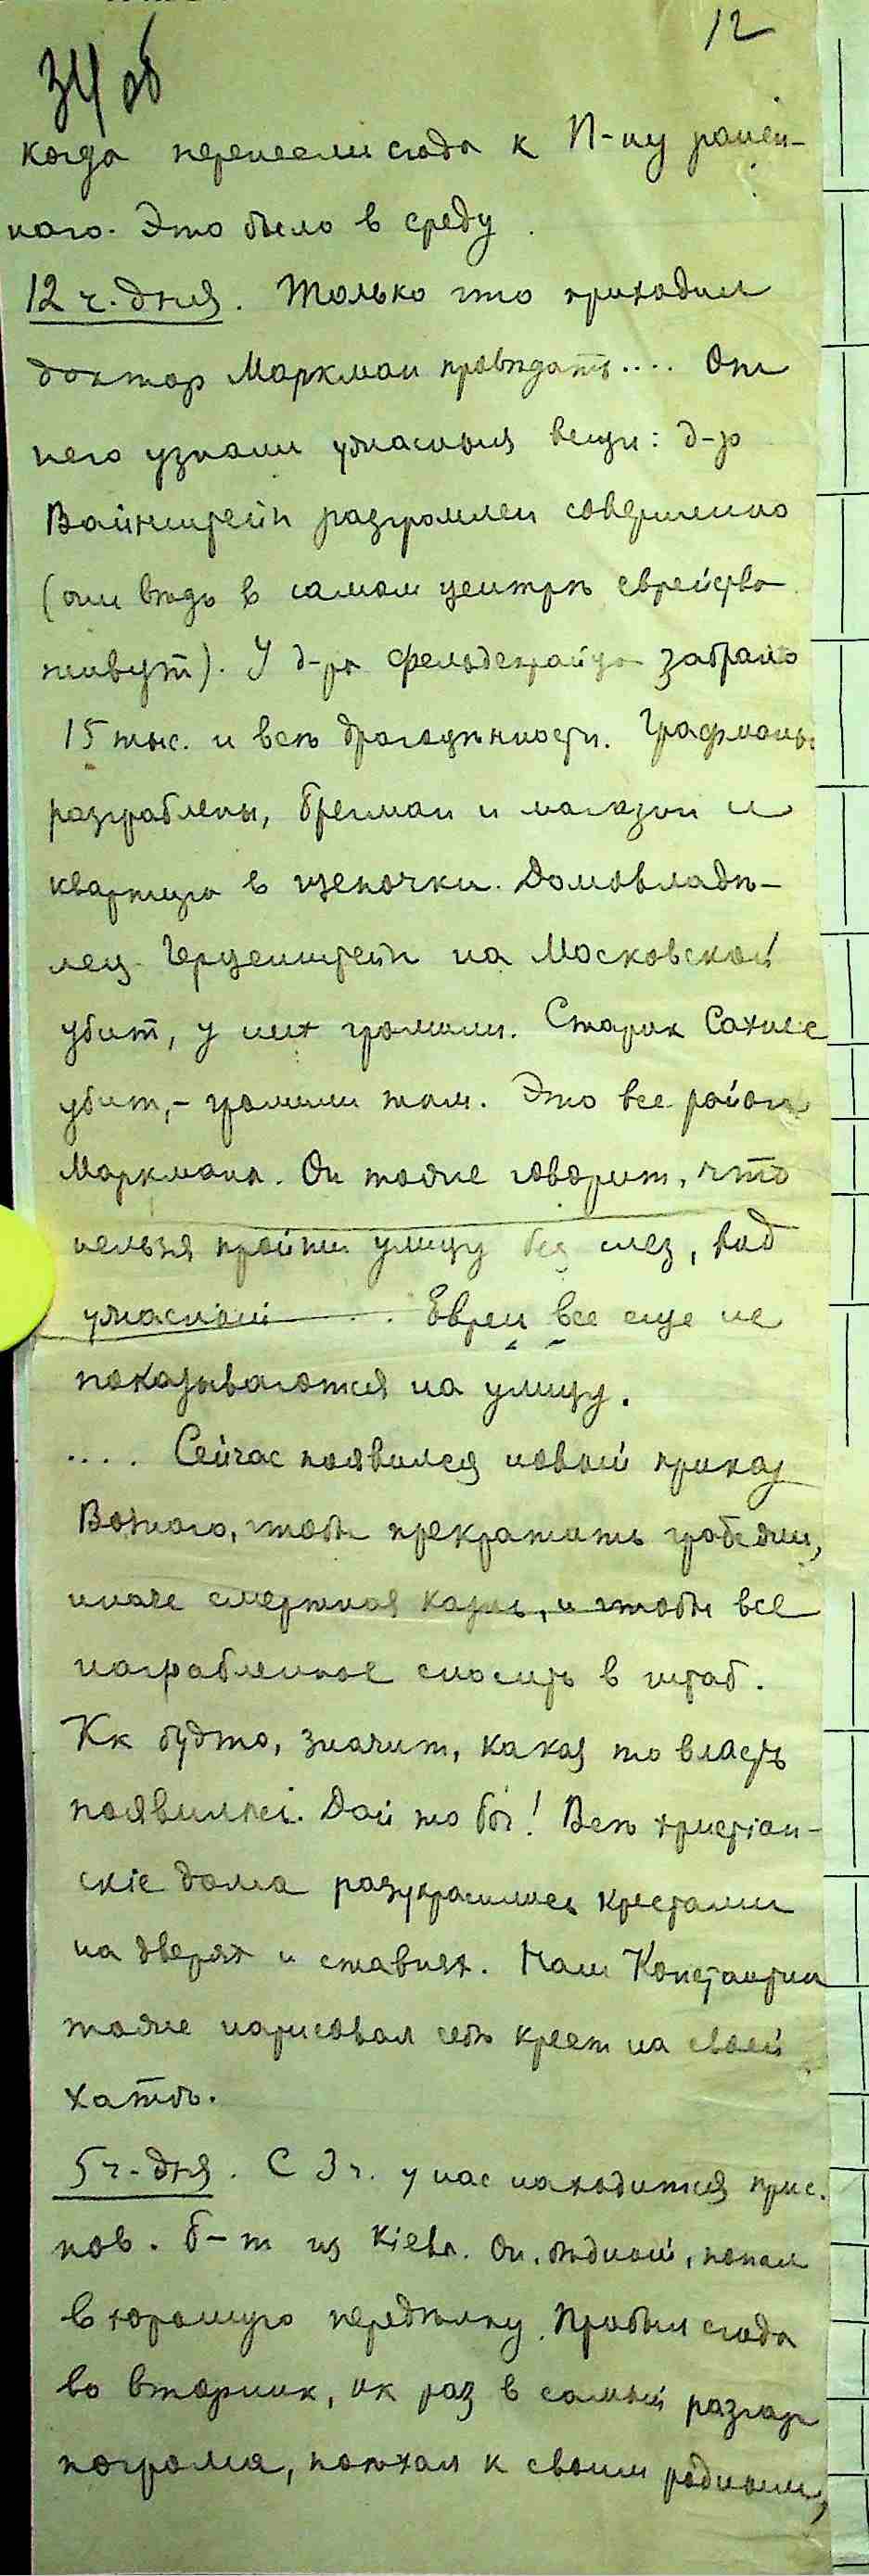 12
34 об
когда перенесли сюда к П-му ранен-
ного. Это было в среду.
12 ч. дня. Только что приходил
доктор Маркман провѣдать.... От
него узнали ужасныя вещи: д-р
Вайнштейн разгромлен совершенно
(они вѣдь в самом центрѣ еврейства
живут). У д-ра забрано
15 тыс. и всѣ драгоцѣнности. Графманы
разграблены, Брегман и магазин и
квартира в щепочки. Домовладѣ-
лец Герценштейн на Московской
убит, у них громили. Старик
убит,- громили там. Это все район
Маркмана. Он тоже говорит, что
нельзя пройти улицу без слез, вид
ужасный . . Евреи все еще не
показываются на улицу.
.... Сейчас появился новый приказ
чтобы прекратить грабежи,
иначе смертная казнь, и чтобы все
награбленное сносить в штаб.
Кк будто, значит, какая то власть
появилась. Дай то Бог! Всѣ христіан-
скіе дома разукрасились крестами
на дверях и ставнях. Наш Константин
тоже нарисовал себѣ крест на своей
хатѣ.
5 ч. дня. С 3 ч. у нас находится прис.
пов. Б-т из Кіева. Он, бѣдный, попал
в хорошую передѣлку. Прибыл сюда
во вторник, кк раз в самый разгар
погрома, поѣхал к своим родным,